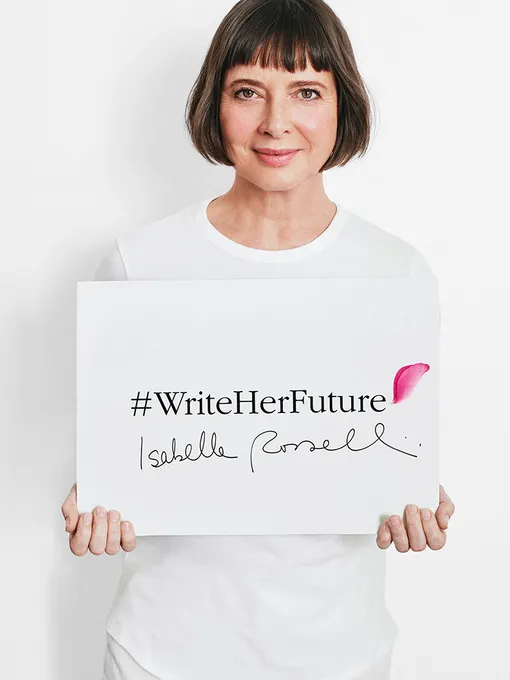 #WriteHerFuture
Isabella Rossellini